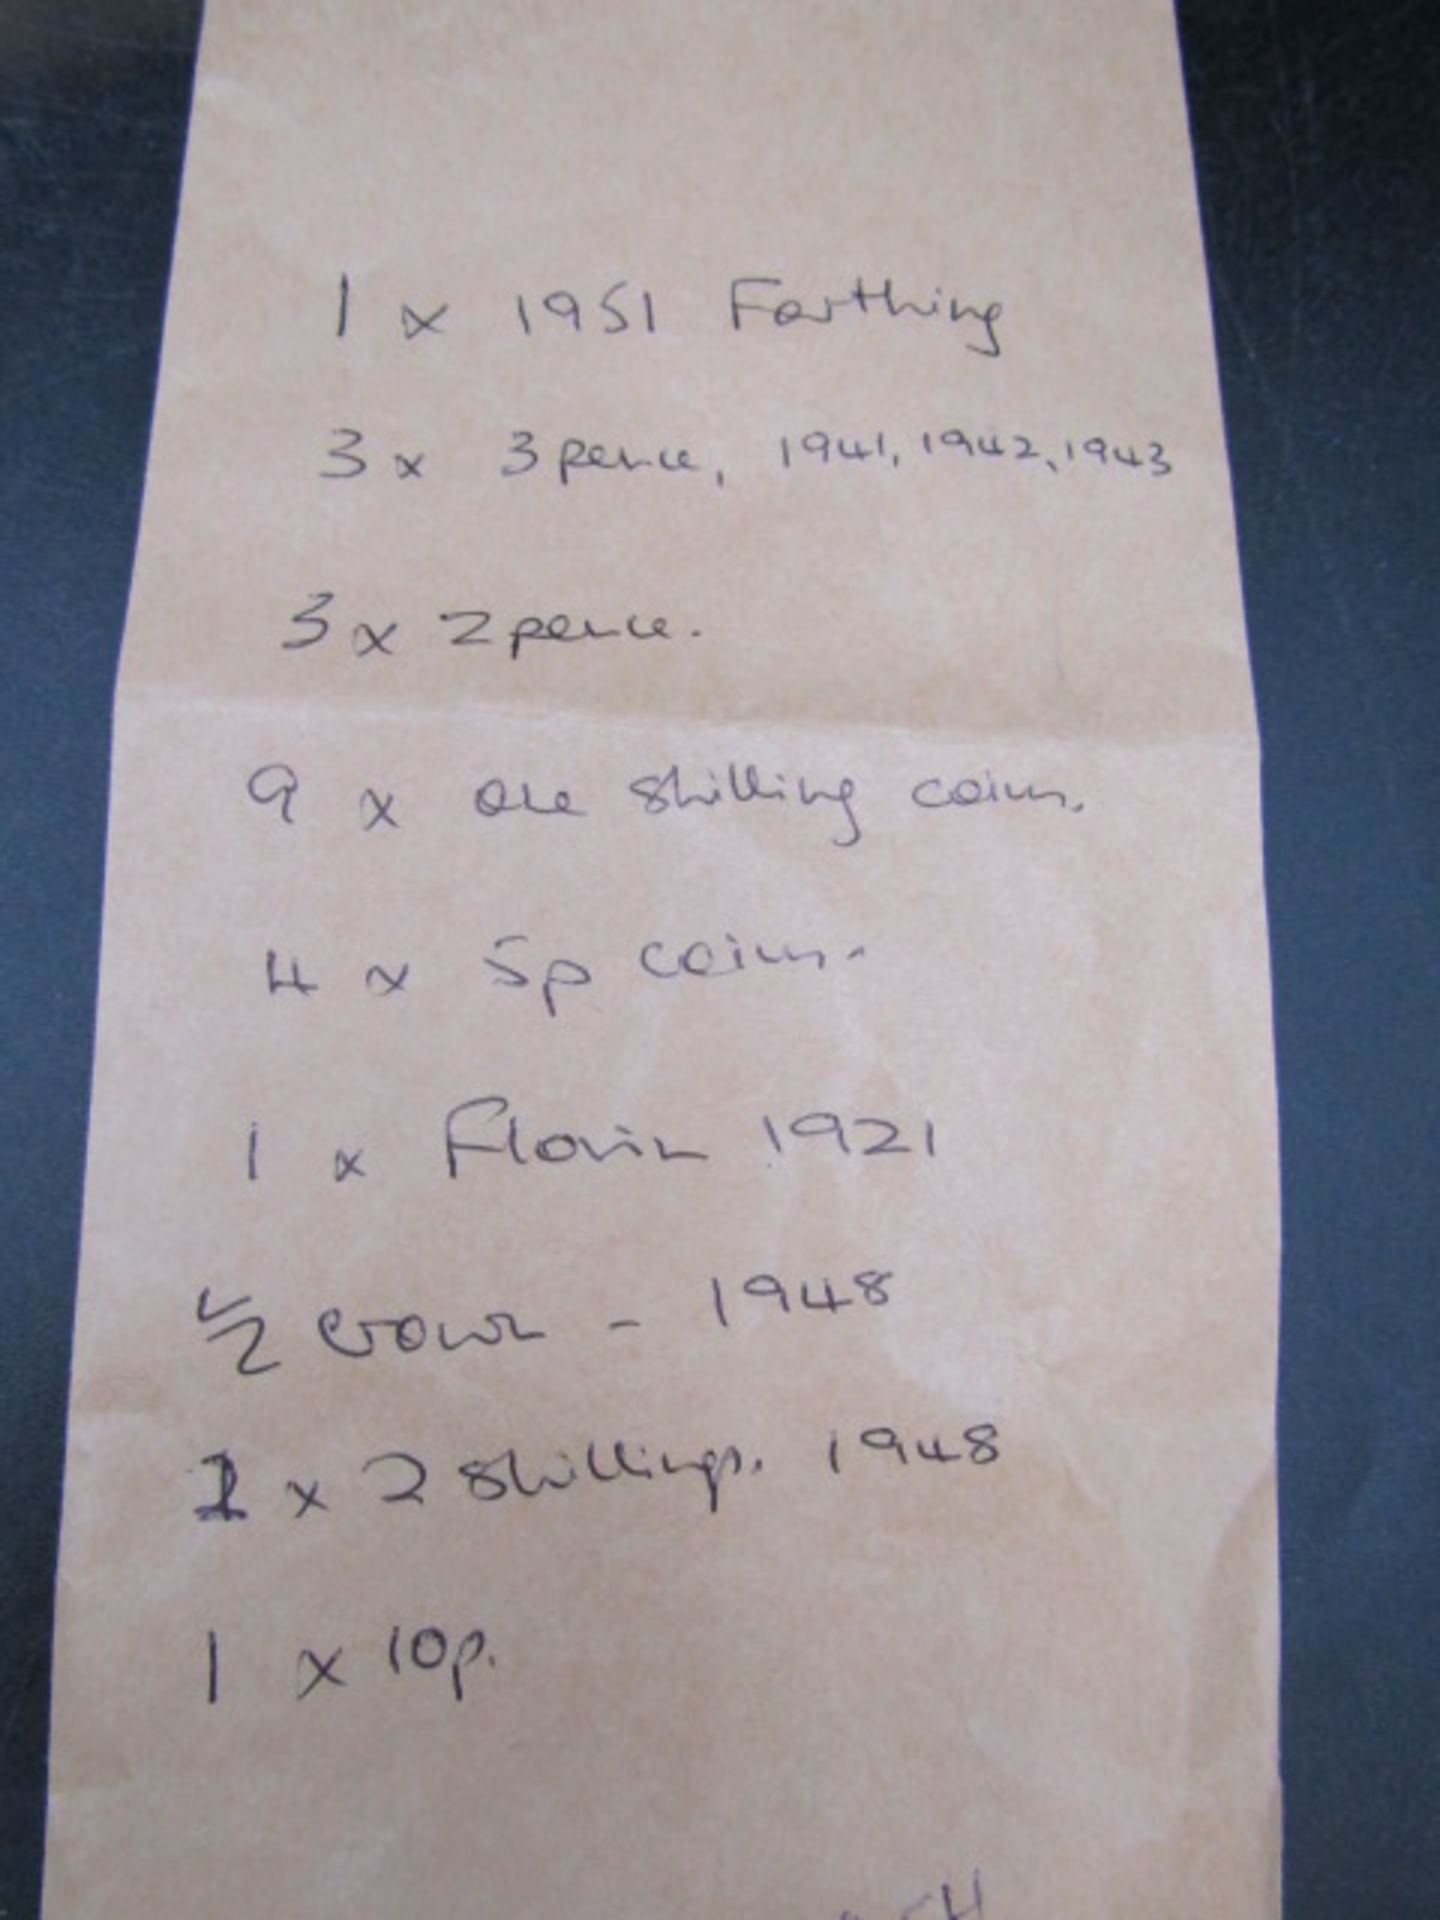 1 x 1951 Farthing
3 x 3 pence, 1941, 1942, 1943
3 x 2 pence.
9 x one shilling coins.
4 x 5p coins.
1 x Florin 1921
1/2 crown - 1948
x 2 shillings. 1948
1 x 10p.